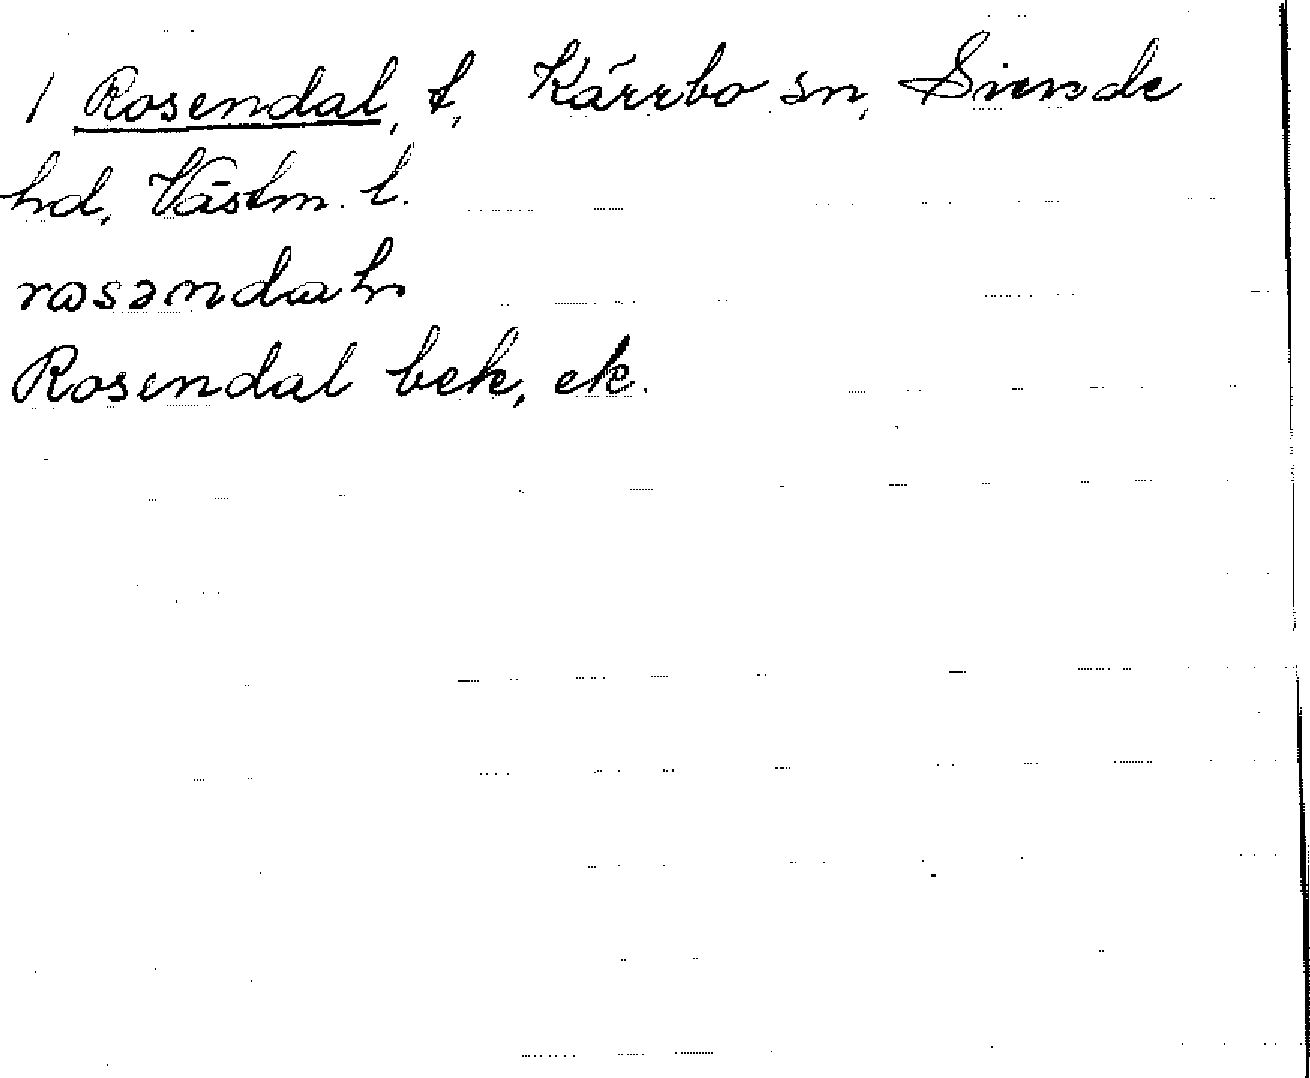 1 Rosendal, t, Kärrbo sn, Siende
hd, Västm. l.
Rosendal bek, ek.